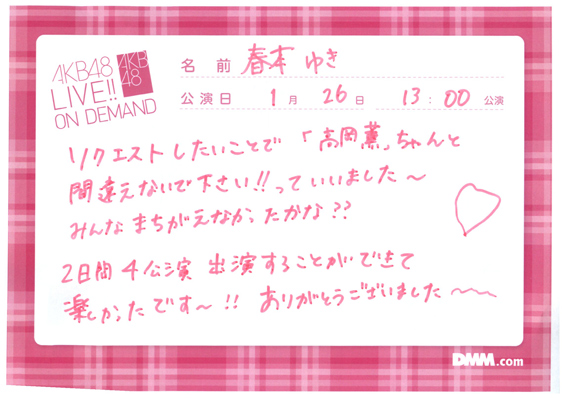 AKB48
LIVE!!
ON DEMAND
AKB
48
名前 春本 ゆき
公演日 1月 26日 13:00 公演
リクエストしたいことで 「高岡薫」ちゃんと
間違えないで下さい!!っていいました〜
みんなまちがえなかったかな??
2日間4公演 出演することができて
楽しかったです〜!! ありがとうございました〜〜
DMM.com